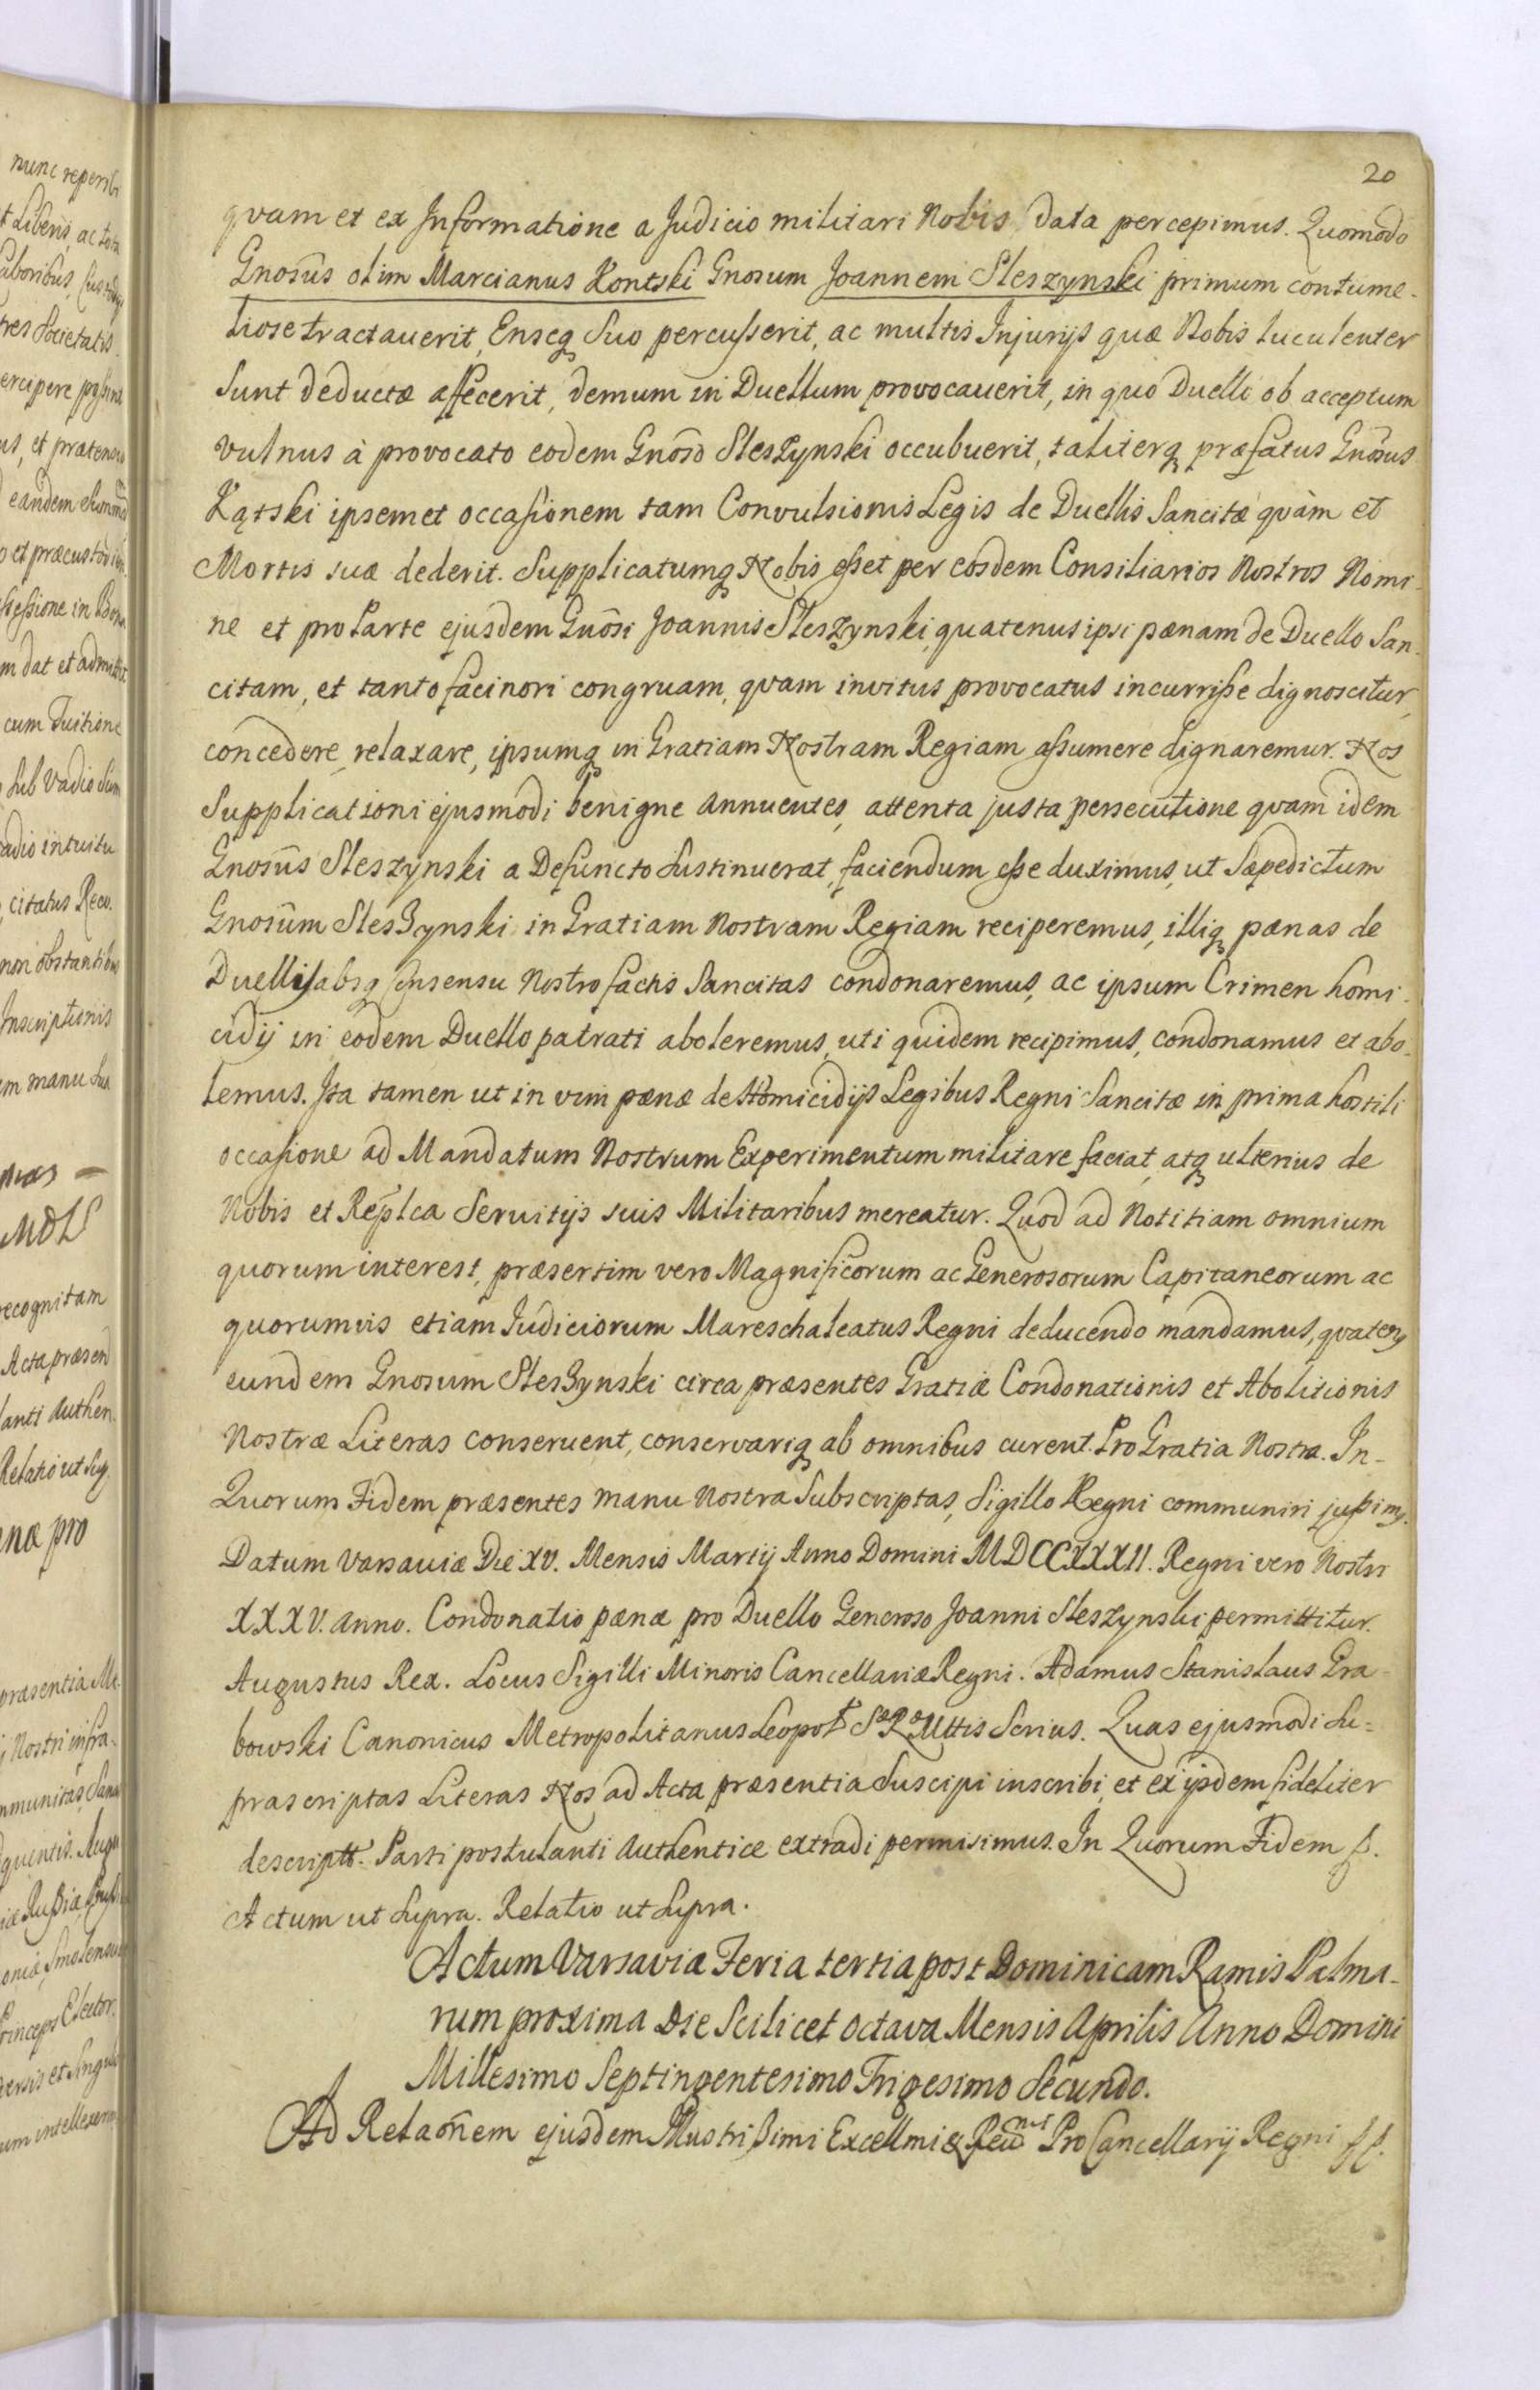 20
qvam et ex Informatione a Judicio militari Nobis data percepimus. Quomodo
Gnosūs olim Marcianus Kontski Gnosum Joannem Sleszynski primum contume-
liose tractauerit, Enseq Suo percusserit, ac multis Injurijs quæ Nobis luculenter
Sunt deductæ affecerit, demum in Duellum provocauerit, in quo Duello ob acceptum
vulnus à provocato eodem Gnōso Sleszynski occubuerit, taliterq præfatus Gnōsus
Kątski ipsemet occasionem tam Convulsionis Legis de Duellis Sancitæ quàm et
Mortis suæ dederit. Supplicatumq Nobis esset per eosdem Consiliarios Nostros Nomi-
ne et pro Parte ejusdem Gnōsi Joannis Sleszynski, quatenus ipsi pænam de Duello San-
citam, et tanto facinori congruam, qvam invitus provocatus incurrisse dignoscitur,
concedere, relaxare, ipsumq in Gratiam Nostram Regiam assumere dignaremur. Nos
Supplicationi ejusmodi benigne Annuentes, attenta justa persecutione qvam idem
Gnosūs Sleszynski a Defuncto Sustinuerat, faciendum esse duximus, ut Sæpedictum
Gnosūm Sleszynski in Gratiam Nostram Regiam reciperemus, illiq pænas de
Duellis absq Consensu Nostro factis Sancitas condonaremus, ac ipsum Crimen homi-
cidij in eodem Duello patrati aboleremus, uti quidem recipimus, condonamus et abo-
lemus. Ita tamen ut in vim pænæ de Homicidijs Legibus Regni Sancitæ in prima hostili
occasione ad Mandatum Nostrum Experimentum militare faciat, atq ulterius de
Nobis et Replca Seruitijs suis Militaribus mereatur. Quod ad Notitiam omnium
quorum interest, præsertim vero Magnificorum ac Generosorum Capitaneorum ac
quorumvis etiam Judiciorum Mareschaleatus Regni deducendo mandamus, qvateng
eundem Gnosum Sleszynski circa præsentes Gratiæ Condonationis et Abolitionis
Nostræ Literas conseruent, conservariq ab omnibus curent. Pro Gratia Nostra. In-
Quorum Fidem præsentes manu Nostra Subscriptas, Sigillo Regni communiri jussimg.
Datum Varsaviæ Die XV. Mensis Martij Anno Domini MDCCXXXII. Regni vero Nostri
XXXV. anno. Condonatio pænæ pro Duello Generoso Joanni Sleszynski permittitur.
Augustus Rex. Locus Sigilli Minoris Cancellariæ Regni. Adamus Stanislaus Gra-
bowski Canonicus Metropolitanus Leopol SæRæMttis Scrius. Quas ejusmodi Su-
prascriptas Literas Nos ad Acta præsentia Suscipi inscribi, et ex ijsdem fideliter
descriptt. Parti postulanti Authentice extradi permisimus. In Quorum Fidem p.
Actum ut Supra. Relatio ut Supra.
Actum Varsaviæ Feria tertia post Dominicam Ramis Palma-
rum proxima Die Scilicet octava Mensis Aprilis Anno Domini
Millesimo Septingentesimo Trigesimo Secundo.
Ad Relaōnem ejusdem Illustrissimi Excellmi & Pro Cancellarij Regni pp.